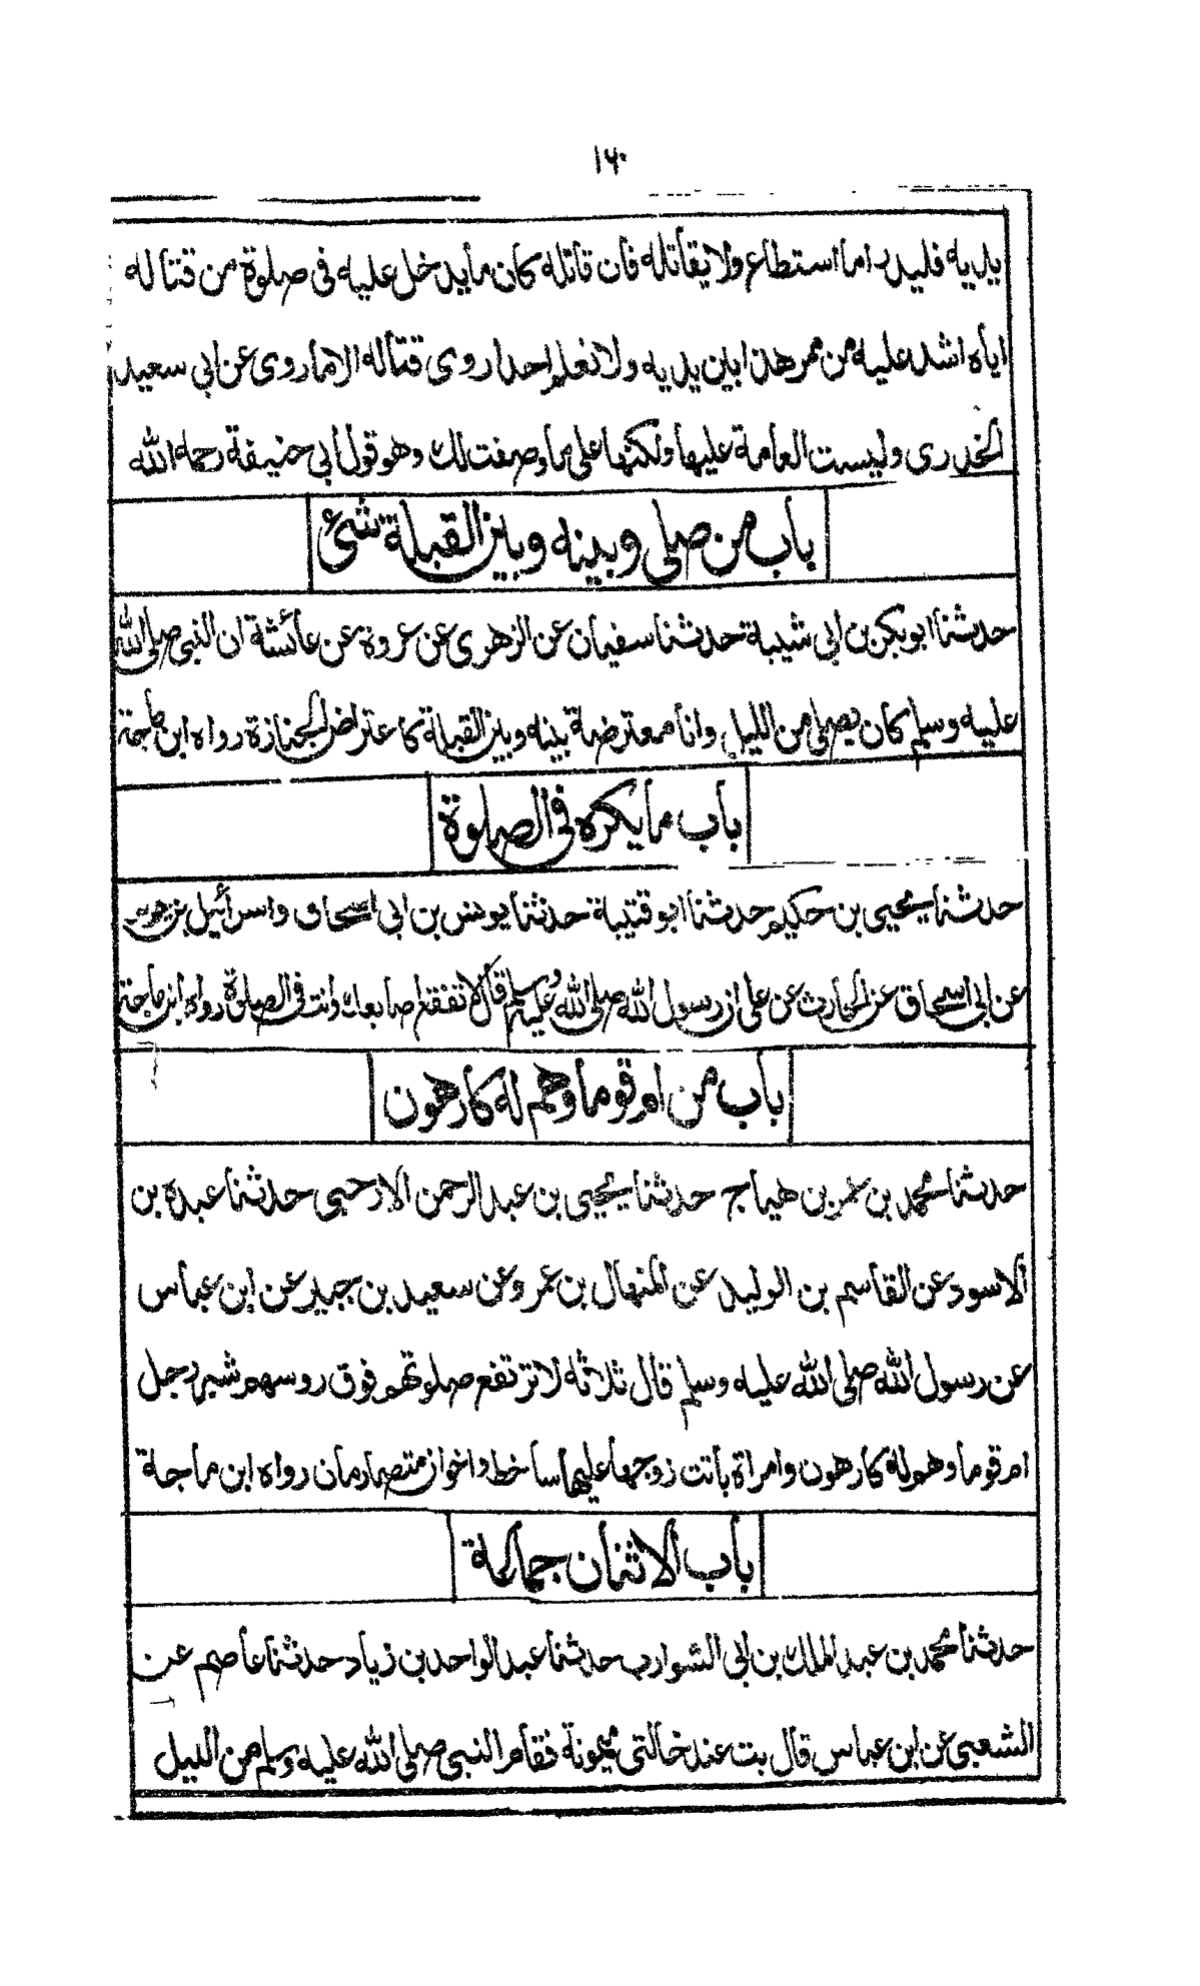 ١٦٠
يديه فليدرء ما استطاع ولا يقاتله فان قاتله كان ما يدخل عليه فى صلوة من قتاله
اياه اشد عليه من ممر هذا بين يديه ولا نعلم احدا روى قتاله الا ما روى عن ابي سعيد
الخدرى وليست العامة عليها ولكنها على ما وصفت لك وهو قول ابي حنيفة رحمه الله
باب من صلى وبينه وبين القبلة شئ
حدثنا ابو بكر بن ابي شيبة حدثنا سفيان عن الزهرى عن عروة عن عائشة ان النبى صلى الله
عليه وسلم كان يصلى من الليل وانا معترضة بينه وبين القبلة كاعتراض الجنازة رواه ابن ماجة
باب ما يكره فى الصلوة
حدثنا يحيى بن حكيم حدثنا ابو قتيبة حدثنا يونس بن ابى اسحاق واسرائيل بن يونس
عن ابى اسحاق عن الحارث عن على ان رسول الله صلى الله عليه وسلم قال لا تفقع اصابعك وانت فى الصلوة رواه ابن ماجة
باب من ام قوما وهم له كارهون
حدثنا محمد بن عمر بن هياج حدثنا يحيى بن عبد الرحمن الارحبى حدثنا عبدة بن
الاسود عن القاسم بن الوليد عن المنهال بن عمرو عن سعيد بن جبير عن ابن عباس
عن رسول الله صلى الله عليه وسلم قال ثلاثة لا ترتفع صلوتهم فوق روسهم شبر رجل
ام قوما وهم له كارهون وامراة باتت زوجها عليها ساخط واخوان متصارمان رواه ابن ماجة
باب الاثنان جماعة
حدثنا محمد بن عبد الملك بن ابى الشوارب حدثنا عبد الواحد بن زياد حدثنا عاصم عن
الشعبى عن ابن عباس قال بت عند خالتى ميمونة فقام النبى صلى الله عليه وسلم من الليل